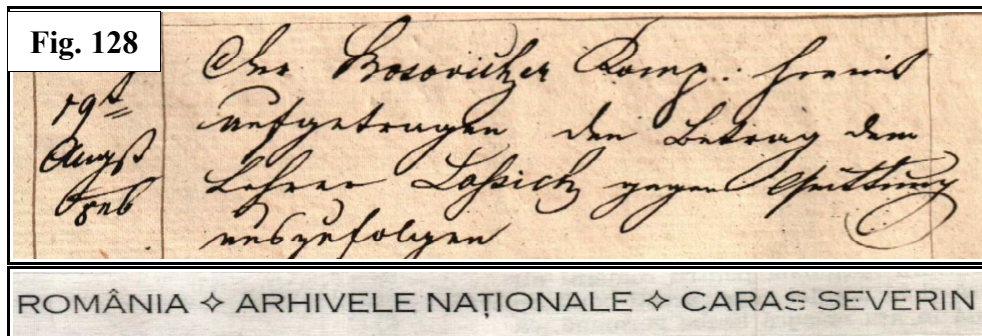 Fig. 128
Der Bosovitzer Komp. hiemit
19t aufgetragen den Betrag dem
Augst Lehrer Laßich gegen Quittung
auszufolgen
ROMÂNIA ✧ ARHIVELE NAȚIONALE ✧ CARAS SEVERIN